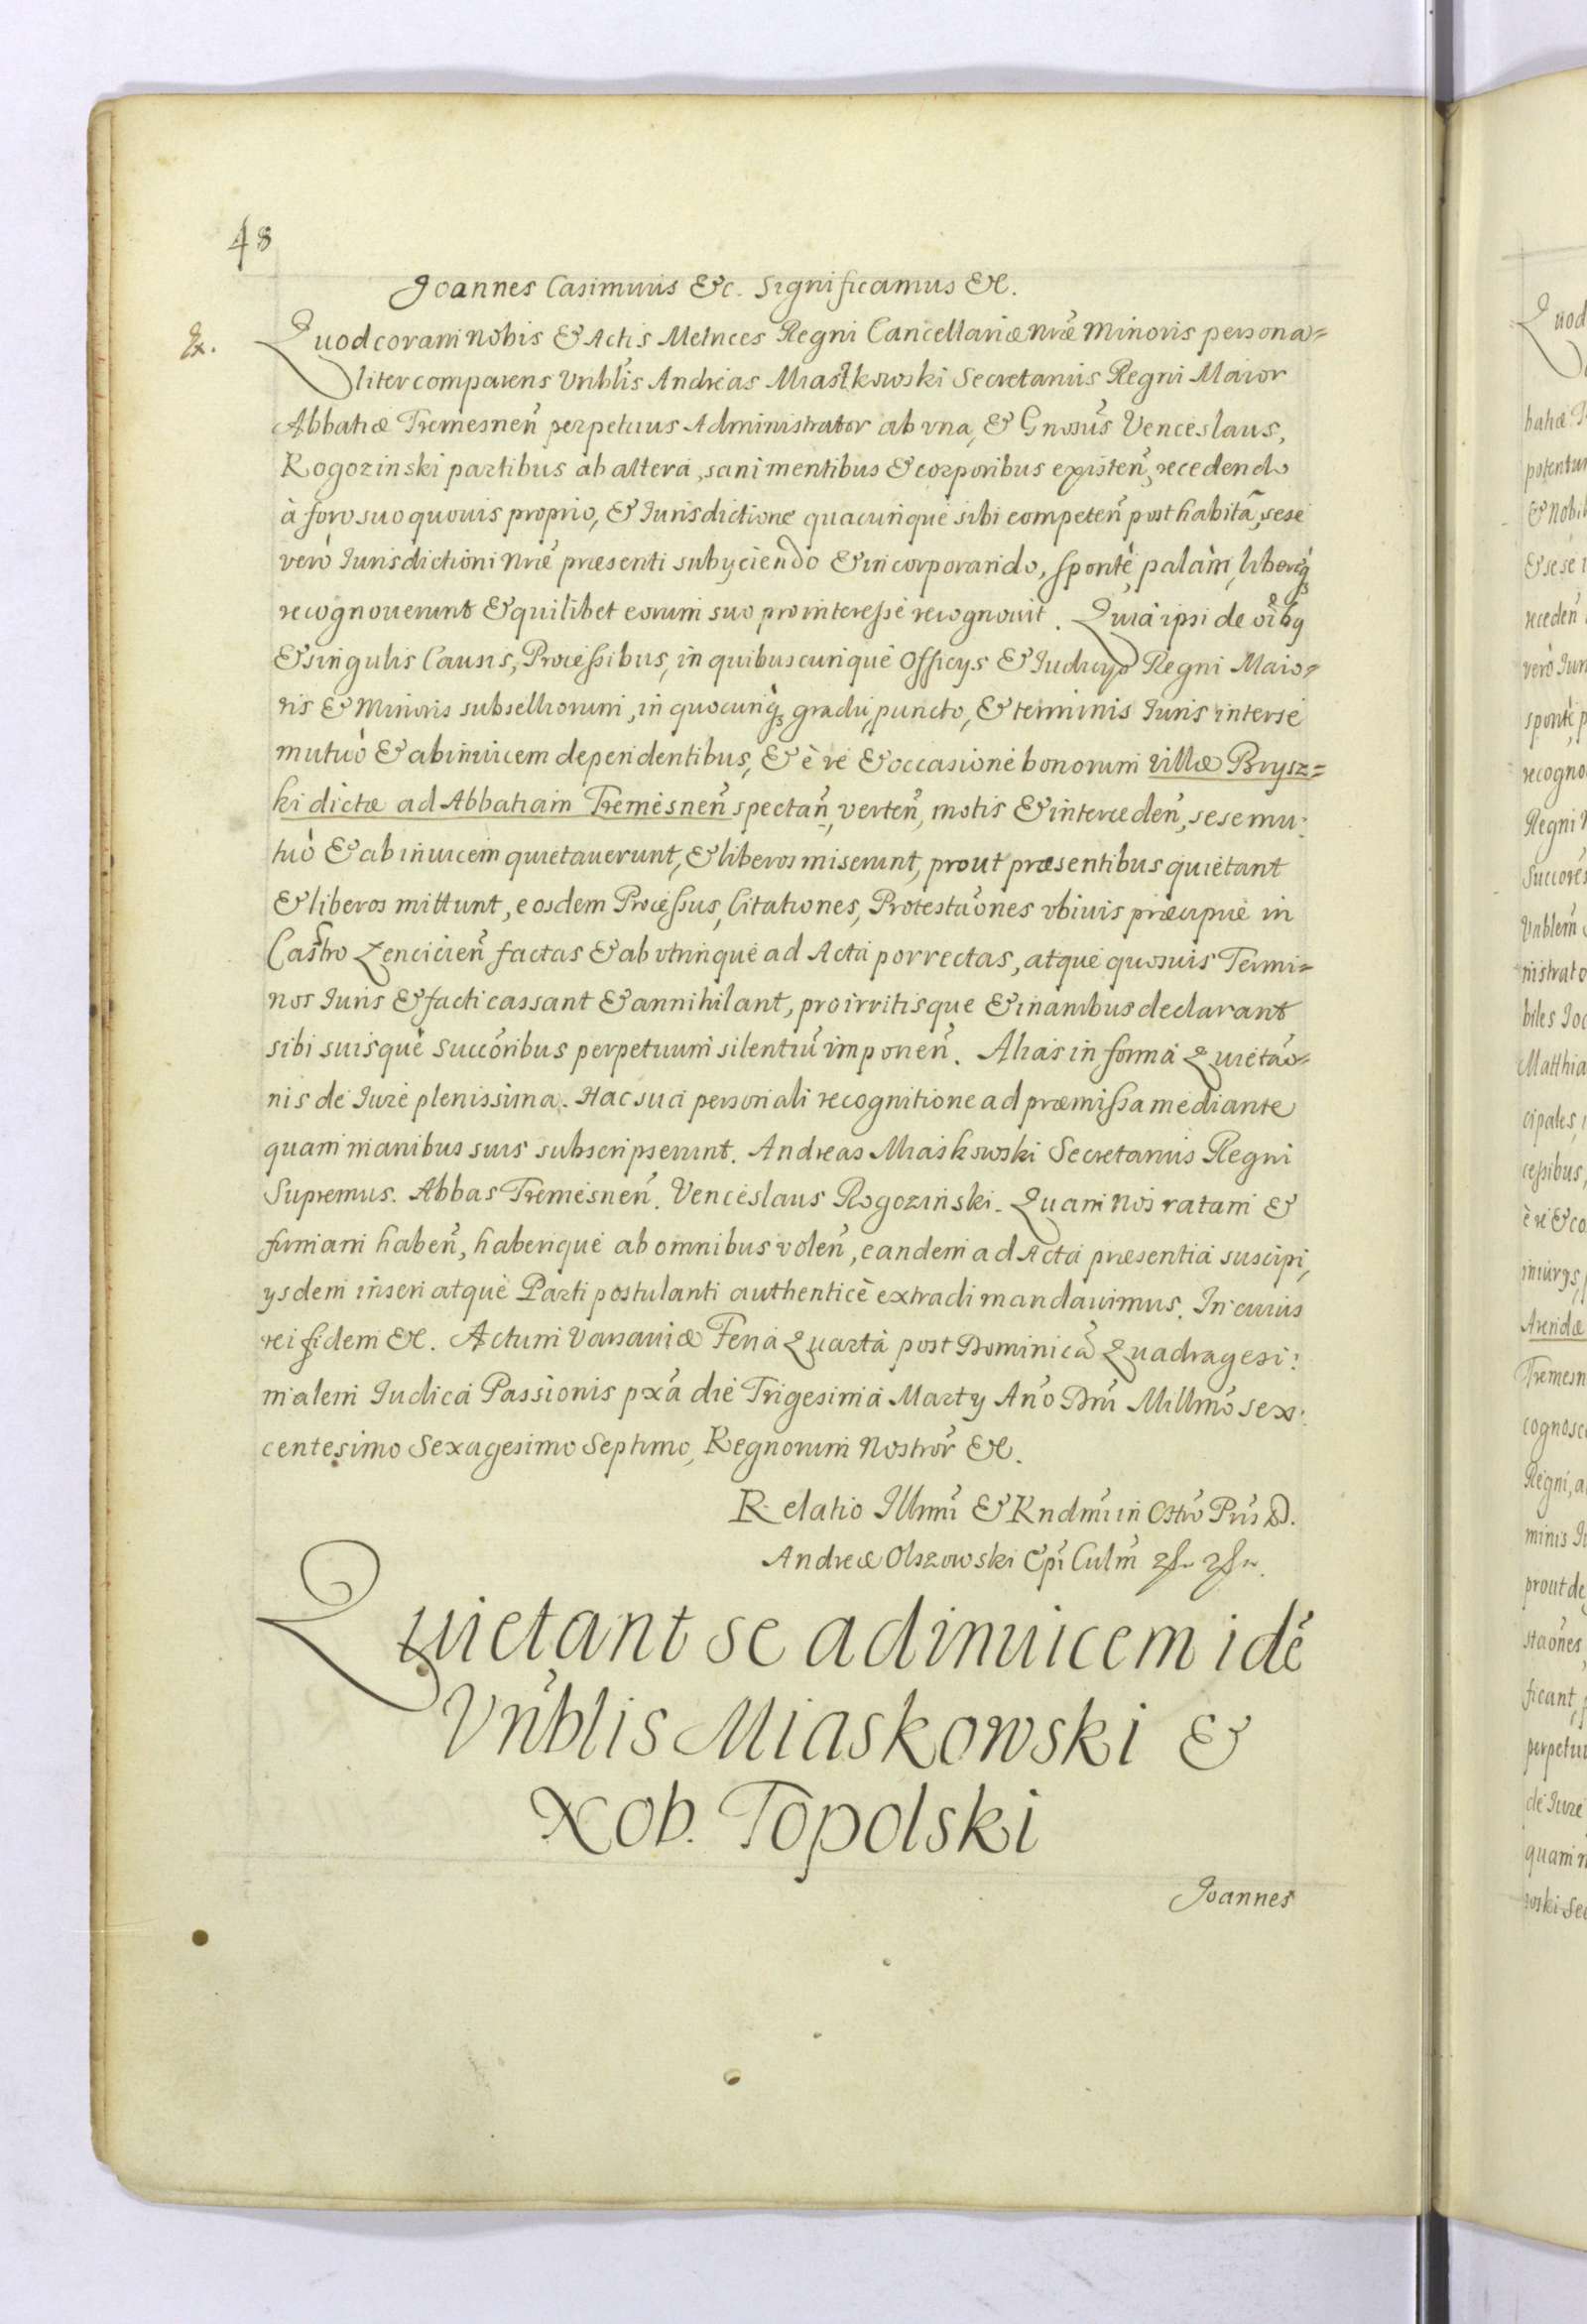 48
Joannes Casimirus &c. Significamus &c.
Ex.
Quod coram nobis & Actis Metrices Regni Cancellariæ nr̃æ Minoris persona=
liter comparens Vnb̃lis Andreas Miaskowski Secretarius Regni Maior
Abbatiæ Tremesneñ perpetuus Administrator ab vna, & Gnosũs Venceslaus,
Rogozinski partibus ab altera, sani mentibus & corporibus existeñ, recedendo
à foro suo quouis proprio, & Iurisdictione quacunque sibi competeñ posthabitã, sese
verò Iurisdictioni nr̃æ præsenti subyciendo & incorporando, sponte palàm, liberq;
recognouerunt & quilibet eorum suo pro interesse recognouit. Quia ipsi de oĩbg
& singulis Causis, Processibus, in quibuscunque Officys & Iudicys Regni Maio=
ris & Minoris subselliorum, in quocunq; gradu, puncto, & terminis Iuris inter se
mutuò & abinuicem dependentibus, & è re & occasione bonorum villæ Brysz=
ki dictæ ad Abbatiam Tremesneñ spectañ, verteñ, motis & intercedeñ, sese mu:
tuò & ab inuicem quietauerunt, & liberos miserunt, prout præsentibus quietant
& liberos mittunt, eosdem Processus, Citationes, Protestãones vbiuis præcipue in
Castro Lencicieñ factas & ab vtrinque ad Acta porrectas, atque quosuis Termi=
nos Iuris & facti cassant & annihilant, pro irritisque & inanibus declarant
sibi suisque succõribus perpetuum silentiũ imponeñ. Alias in forma Quietão=
nis de Iure plenissima. Hac sua personali recognitione ad præmissa mediante
quam manibus suis subscripserunt. Andreas Miaskowski Secretarius Regni
Supremus. Abbas Tremesneñ. Venceslaus Rogozinski. Quam nos ratam &
firmam habeñ, haberique ab omnibus voleñ, eandem ad Acta præsentia suscipi,
ysdem inseri atque Parti postulanti authenticè extradi mandauimus. In cuius
rei fidem &c. Actum Varsauiæ Feria Quarta post Dominicã Quadragesi:
malem Iudica Passionis pxã die Trigesima Marty Año Dñi Millmõ sex:
centesimo Sexagesimo Septimo, Regnorum Nostror̃ &c.
Relatio Illmĩ & Rndmĩ in Chrõ Pris D.
Andreæ Olszowski Epĩ Culm̃
Quietant se adinuicem idẽ
Vñblis Miaskowski &
Nob. Topolski
Joannes